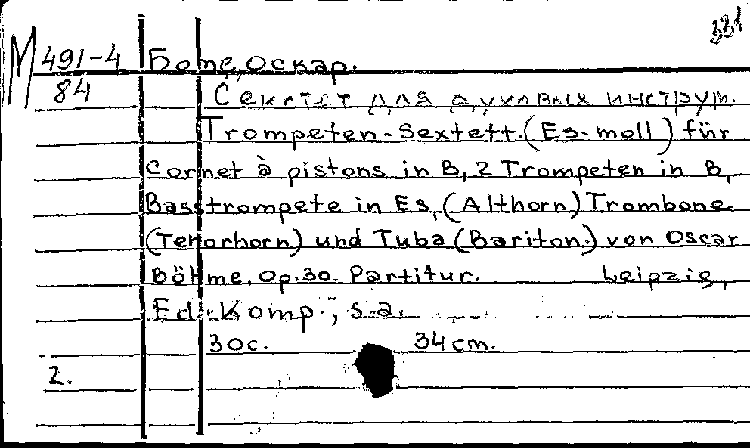 331
М 491-4 Бёме, Оскар.
84 Секстет для духовых инструм.
Trompeten-Sextett. (Es-moll) für
Cornet à pistons in B, 2 Trompeten in B,
Basstrompete in Es, (Althorn) Trombone
(Tenorhorn) und Tuba (Bariton.) von Oscar
Böhme. Op. 30. Partitur. Leipzig,
Ed. Komp., s.a.
30 с. 34 cm.
2.